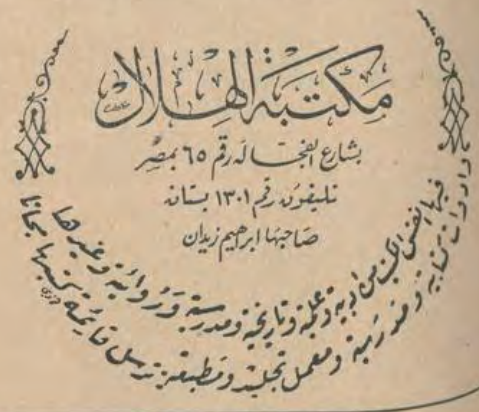 مكتبة الهلال
بشارع الفجالة رقم ٦٥ بمصر
تليفون رقم ١٣٠١ بستان
صاحبها ابراهيم زيدان
فيها أنفس الكتب من ادبية وعلمية وتاريخية ومدرسية وروائية وغيرها
وادوات كتابية ومدرسية ومعمل تجليد ومطبعة ترسل قائمة كتبها مجانا